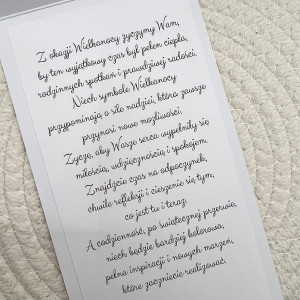 Z okazji Wielkanocy życzymy Wam,
by ten wyjątkowy czas był pełen ciepła,
rodzinnych spotkań i prawdziwej radości.
Niech symbole Wielkanocy
przypominają o sile nadziei, która zawsze
przynosi nowe możliwości.
Życzę, aby Wasze serca wypełniły się
miłością, wdzięcznością i spokojem.
Znajdźcie czas na odpoczynek,
chwile refleksji i cieszenie się tym,
co jest tu i teraz.
A codzienność, po świątecznej przerwie,
niech będzie bardziej kolorowa,
pełna inspiracji i nowych marzeń,
które zaczniecie realizować.